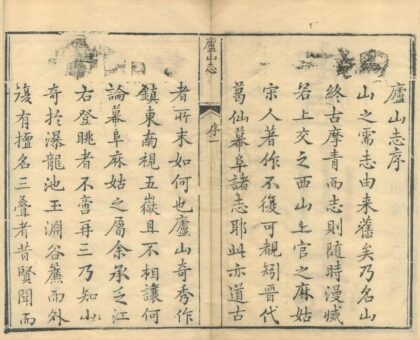 廬山序
山之需志由来舊矣乃名山
終古摩青而志則隨時漫滅
名上交之西山上官之麻姑
宋人著作不復可覩矧晉代
葛仙幕阜諸志耶此亦道古
廬山志
序一
者所末如何也廬山奇秀作
鎮東南視五嶽且不相讓何
論幕阜麻姑之屬余承乏江
右登眺者不啻再三乃知山
奇於瀑龍池玉淵谷簾而外
復有擅名三疊者昔賢聞而